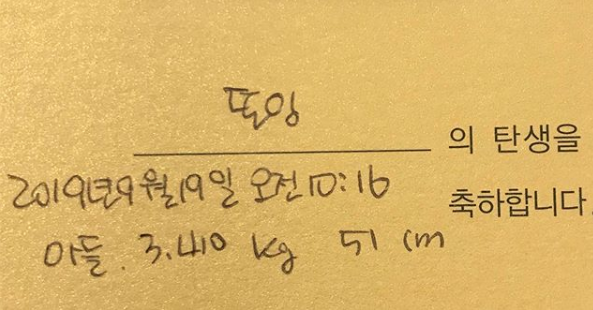 또잉
의 탄생을
2019년 9월 19일 오전 10:16
축하합니다.
아들. 3.410 kg 51 cm